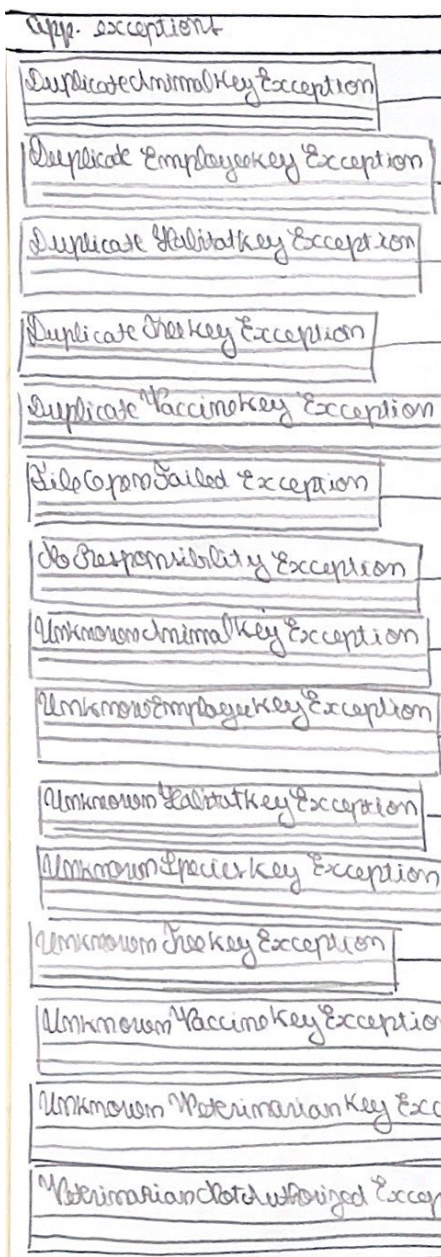 app. exceptions
DuplicateAnimalKeyException
Duplicate EmployeeKey Exception
Duplicate HabitatKey Exception
Duplicate TreeKey Exception
Duplicate VaccineKey Exception
FileOpenFailed Exception
NoResponsibility Exception
UnknownAnimalKey Exception
UnknowEmployeeKey Exception
UnknownHabitatKey Exception
UnknownSpeciesKey Exception
UnknownTreeKey Exception
UnknownVaccineKey Exceptio
Unknown VeterinarianKey Exc
VeterinarianNotAuthorized Excep